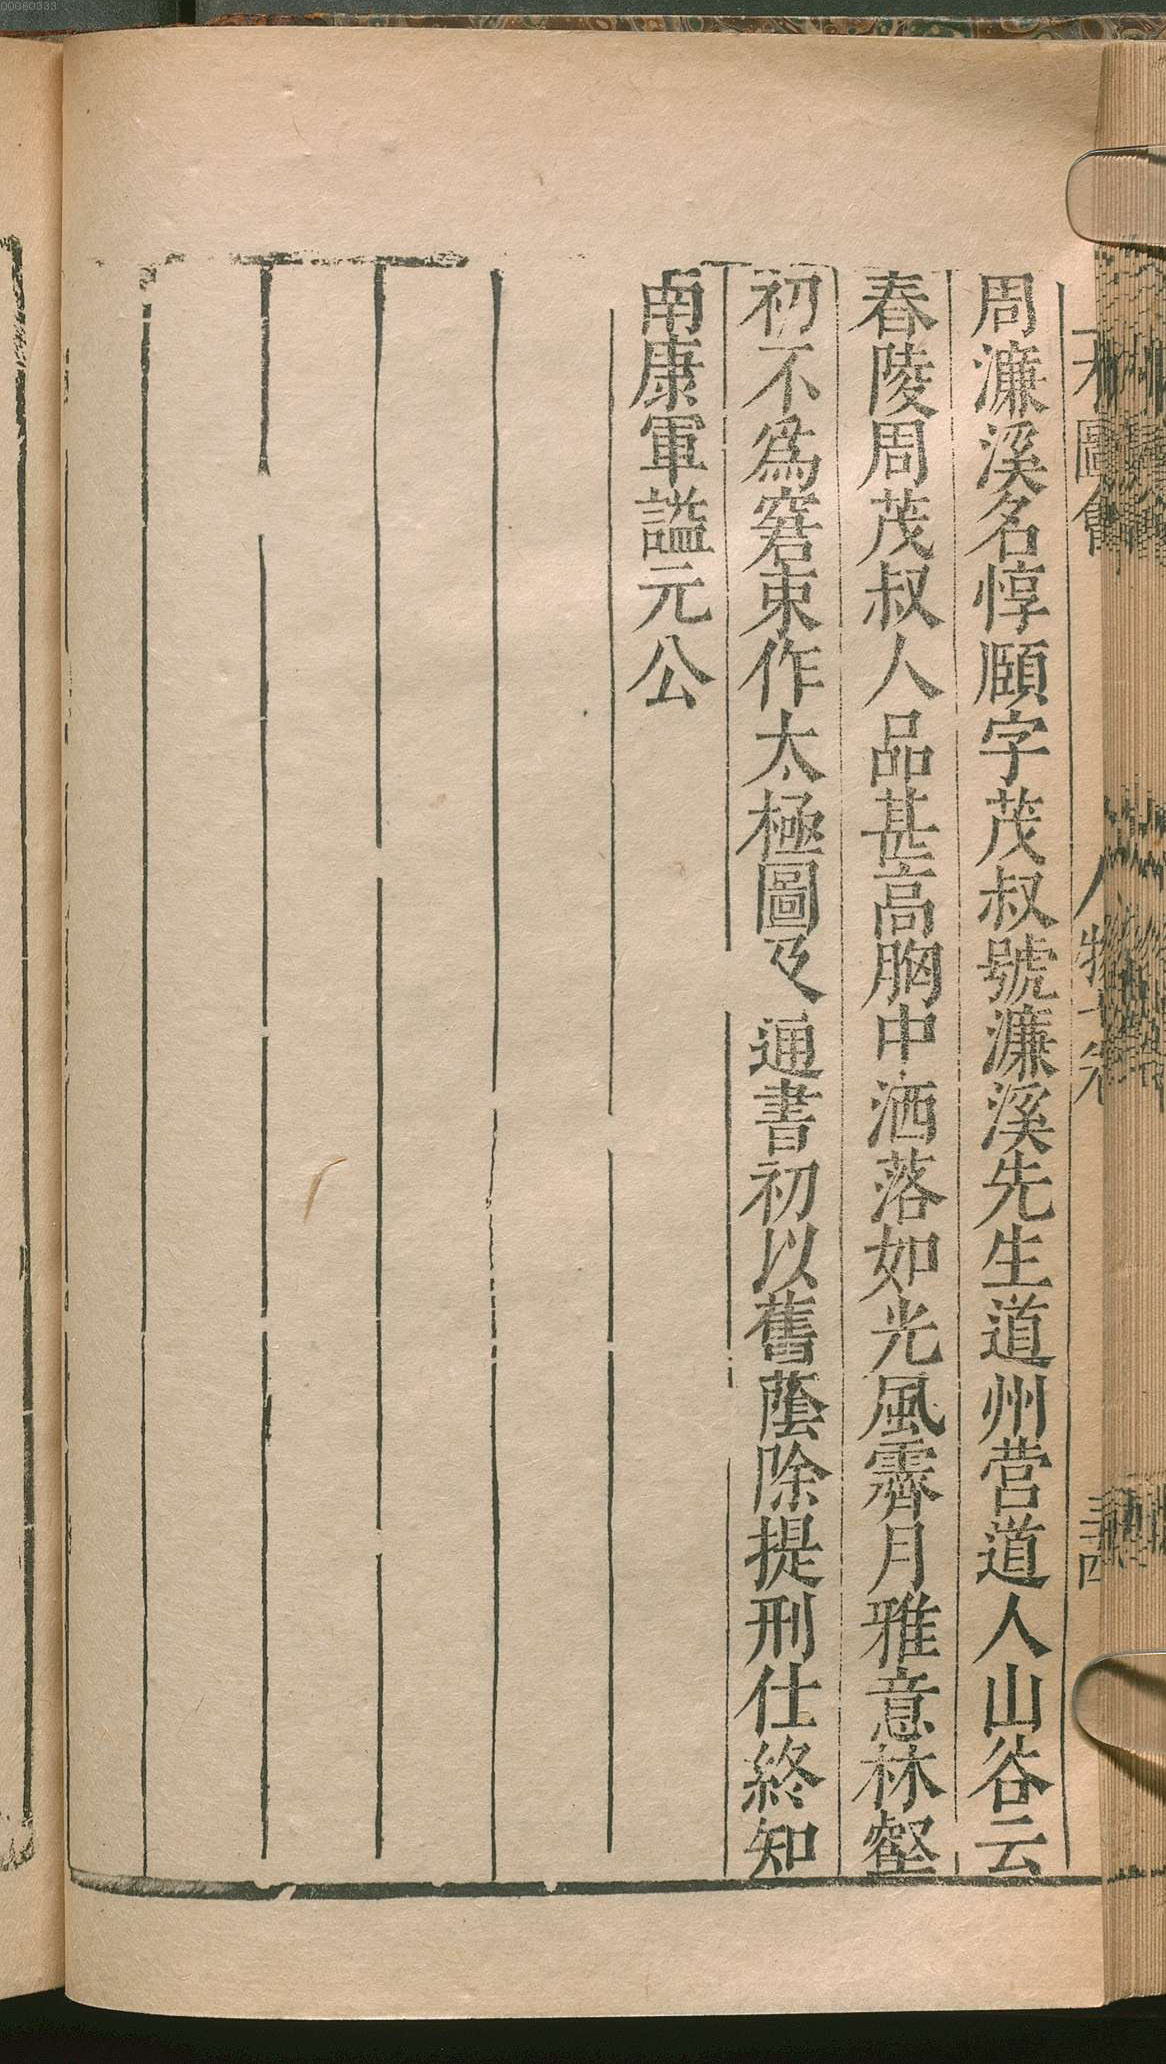 周濂溪名惇頤字茂叔號濂溪先生道州营道人山谷云
春陵周茂叔人品甚高胸中洒落如光風霽月雅意林壑
初不為窘束作太極圖及通書初以舊蔭除提刑仕終知
南康軍謚元公
00060333